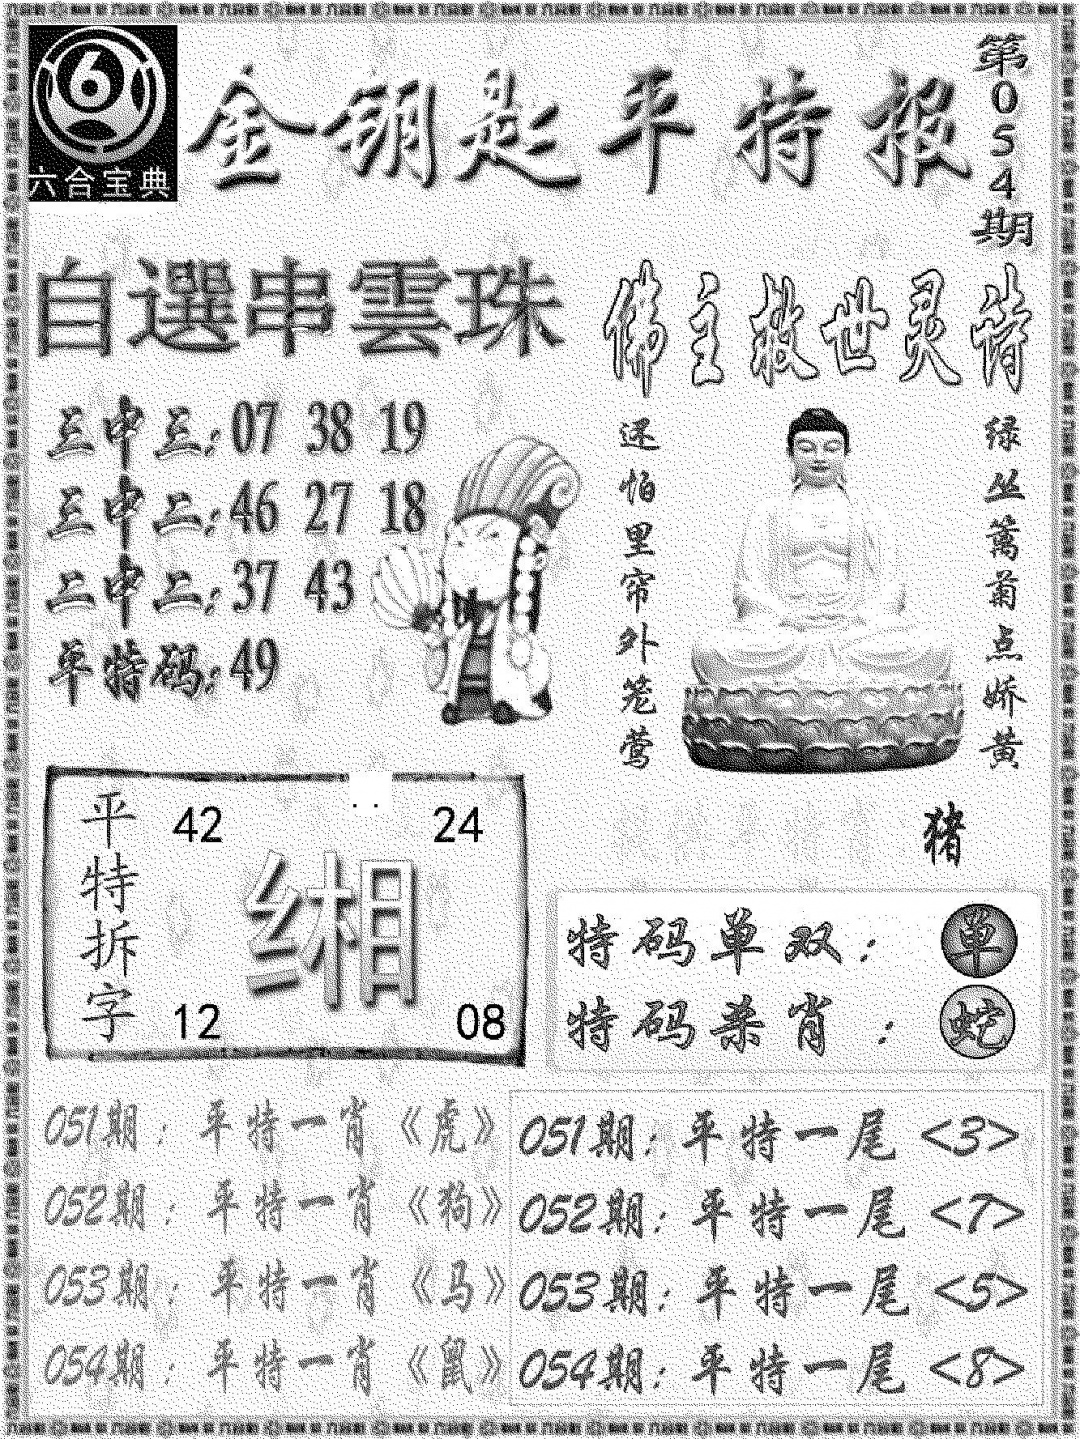 6
六合宝典
金钥匙平特报
第054期
自選串雲珠
三中三:07 38 19
三中二:46 27 18
二中二:37 43
平特码:49
佛主救世灵诗
绿丛篱菊点娇黄
还怕里帘外笼莺
猪
平特拆字
42 24
缃
12 08
特码单双: 单
特码杀肖: 蛇
051期: 平特一肖《虎》
052期: 平特一肖《狗》
053期: 平特一肖《马》
054期: 平特一肖《鼠》
051期: 平特一尾<3>
052期: 平特一尾<7>
053期: 平特一尾<5>
054期: 平特一尾<8>